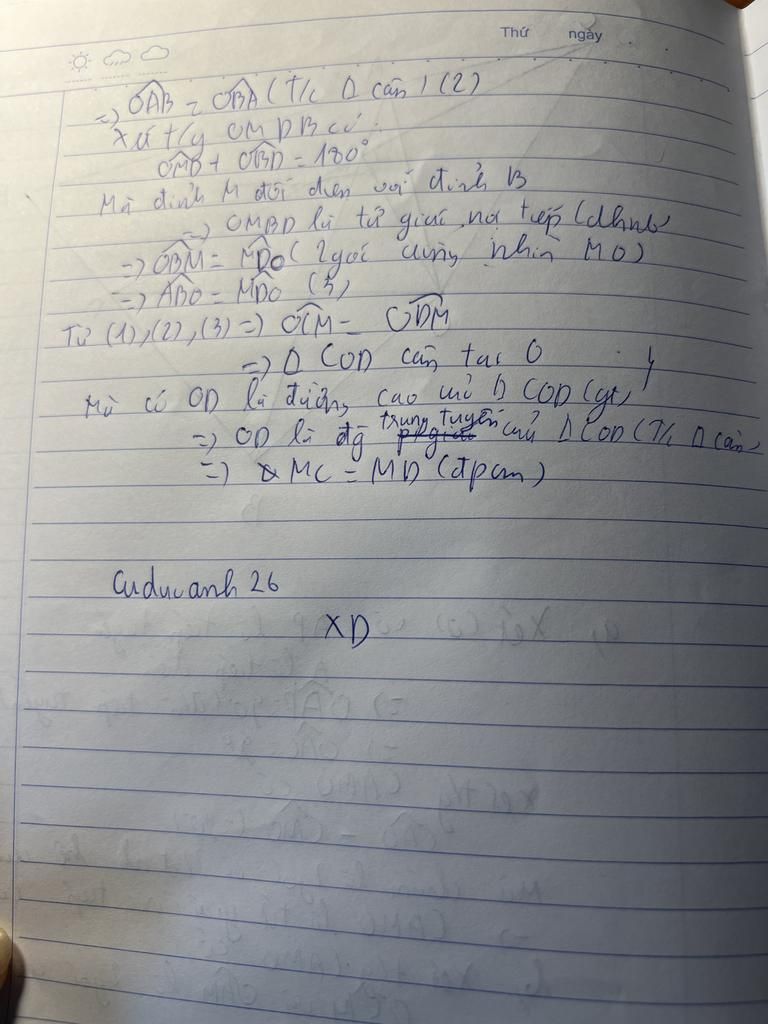 Thứ ngày
=> OAB = OBA (T/c Δ cân) (2)
Xét t/g OMDB có:
OMD + OBD = 180°
Mà đỉnh M đối diện với đỉnh B
=> OMBD là tứ giác nội tiếp (dhnb)
=> OBM = MDO (2 góc cùng nhìn MO)
=> ABO = MDO (3)
Từ (1), (2), (3) => OCM = ODM
=> Δ COD cân tại O
Mà có OD là đường cao của Δ COD (gt)
=> OD là đg trung tuyến của Δ COD (T/c Δ cân)
=> MC = MD (đpcm)
Cuducanh 26
XD